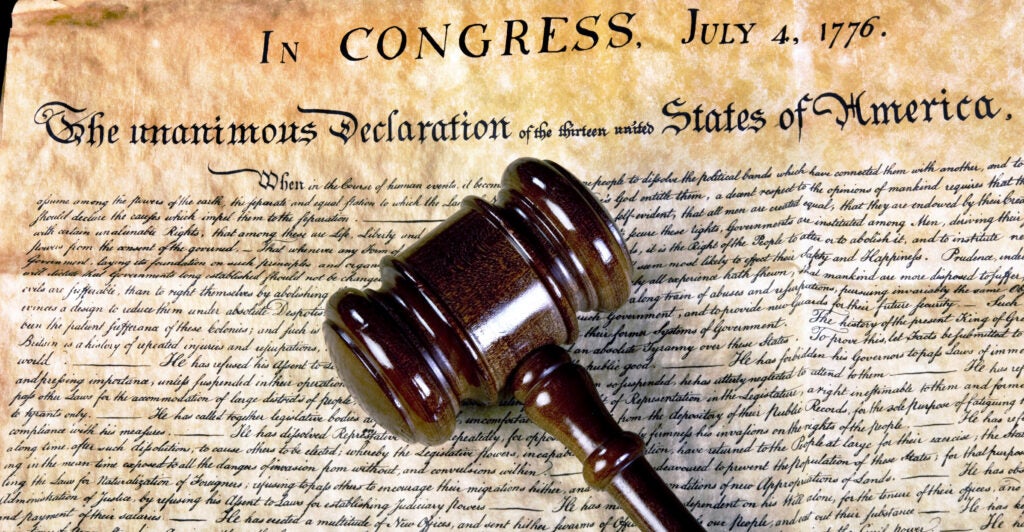 IN CONGRESS, JULY 4, 1776.
The unanimous Declaration of the thirteen united States of America,
When in the Course of human events, it becom people to dissolve the political bands which have connected them with another, and to
assume among the powers of the earth, the separate and equal station to which the Laws s God entitle them, a decent respect to the opinions of mankind requires that th
should declare the causes which impel them to the separation self-evident, that all men are created equal, that they are endowed by their Crea
with certain unalienable Rights, that among these are Life, Liberty and secure these rights, Governments are instituted among Men, deriving their
powers from the consent of the governed. — That whenever any Form it is the Right of the People to alter or to abolish it, and to institute new
Government, laying its foundation on such principles and organ seem most likely to effect their Safety and Happiness. Prudence, indeed
will dictate that Governments long established should not be changed all experience hath shewn, that mankind are more disposed to suffer
evils are sufferable, than to right themselves by abolishing long train of abuses and usurpations, pursuing invariably the same Obj
evinces a design to reduce them under absolute Despotis Government, and to provide new Guards for their future security. — Such
been the patient sufferance of these Colonies; and such is their former Systems of Government. The history of the present King of Gre
Britain is a history of repeated injuries and usurpations, an absolute Tyranny over these States. To prove this, let Facts be submitted to
world. He has refused his Assent to public good. He has forbidden his Governors to pass Laws of imme
and pressing importance, unless suspended in their operation so suspended, he has utterly neglected to attend to them. He has ref
pass other Laws for the accommodation of large districts of people Representation in the Legislature, a right inestimable to them and formid
to tyrants only. He has called together legislative bodies uncomfortable from the depository of their public Records, for the sole purpose of fatiguing
compliance with his measures. He has dissolved Representative repeatedly, for oppos firmness his invasions on the rights of the people. He
long time, after such dissolutions, to cause others to be elected; whereby the Legislative powers, incapable have returned to the People at large for their exercise; the Sta
ing in the mean time exposed to all the dangers of invasion from without, and convulsions within. endeavoured to prevent the population of these States; for that purpose
ing the Laws for Naturalization of Foreigners; refusing to pass others to encourage their migrations hither, and ditions of new Appropriations of Lands.
Administration of Justice, by refusing his Assent to Laws for establishing Judiciary powers. dependent on his Will alone, for the tenure of their offices, and
and payment of their salaries. He has erected a multitude of New Offices, and sent hither swarms of Offi our People, and eat out their substance. He